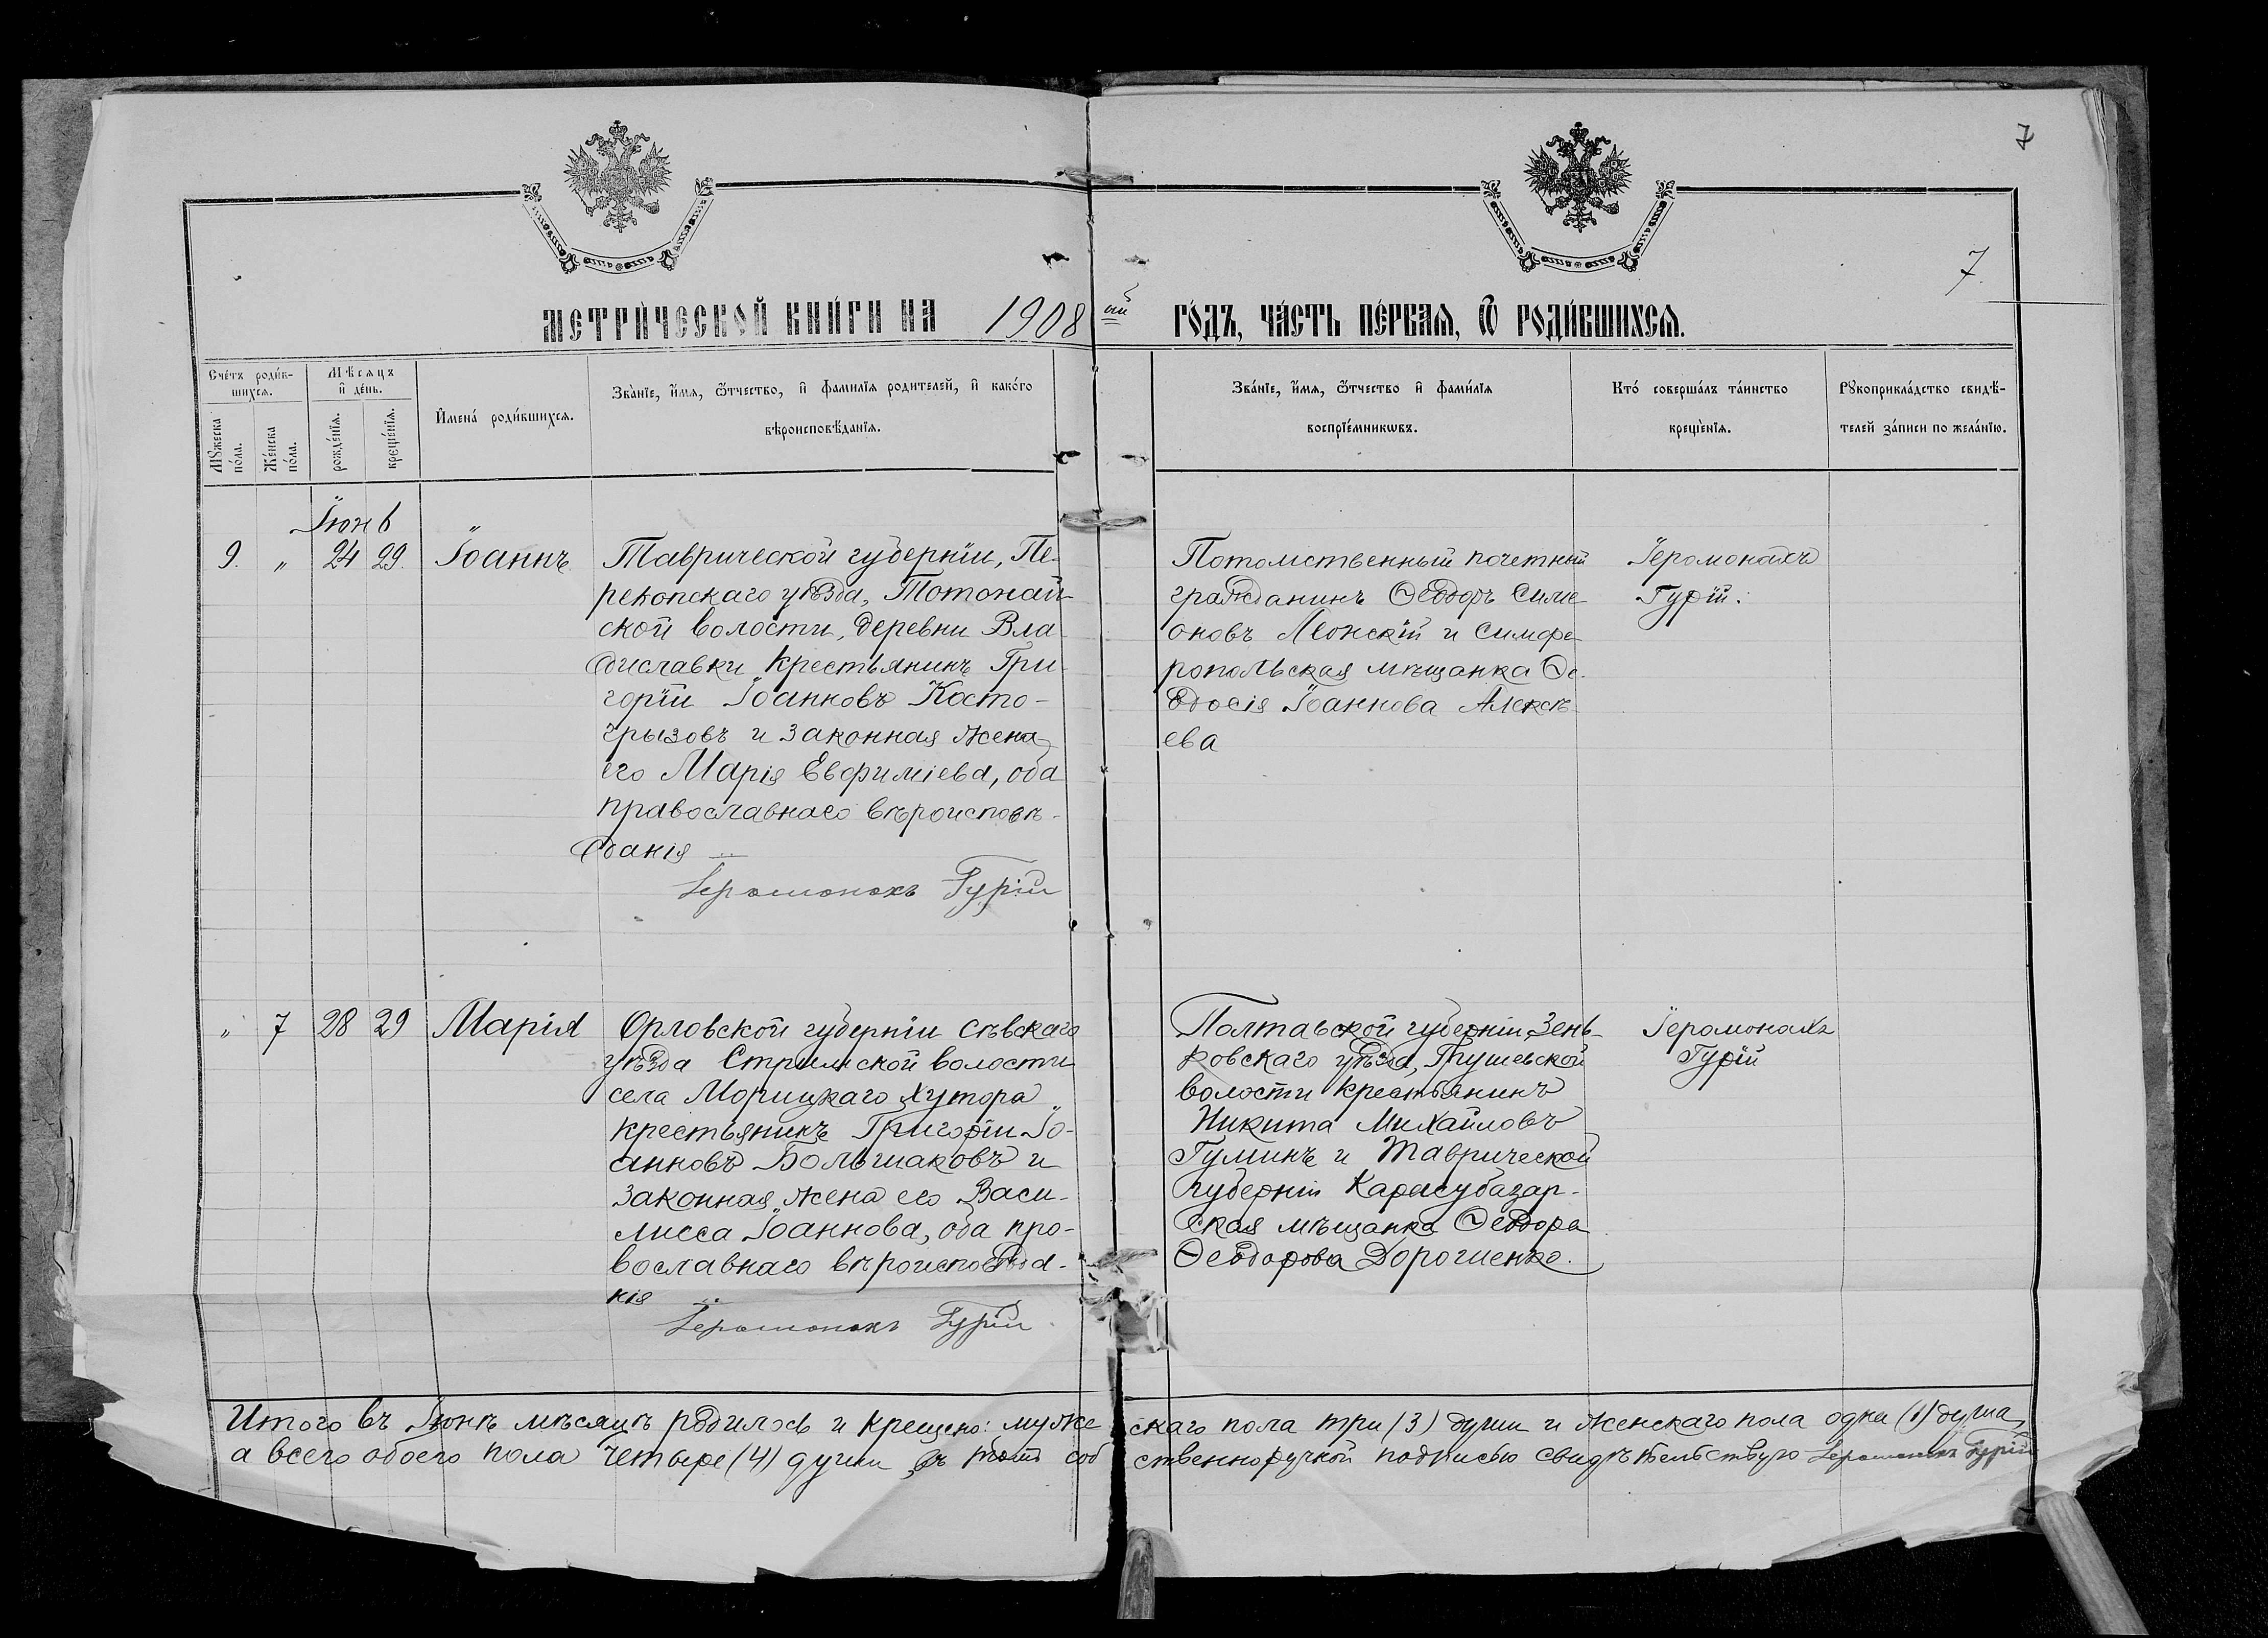 7
7.
МЕТРИ́ЧЕСКОЙ КНИ́ГИ НА 1908 ый ГО́ДЪ, ЧА́СТЬ ПЕ́РВАѦ, Ѽ РОДИ́ВШИХСѦ.
Сче́тъ роди́в-
шихсѧ.
Мѣ́сѧцъ
и҆ де́нь.
Мꙋ́жеска
по́ла.
Же́нска
по́ла.
рожде́нїѧ.
креще́нїѧ.
И҆мена́ роди́вшихсѧ.
Зва́нїе, и҆́мѧ, ѻ҆́тчество, и҆ фами́лїѧ роди́телей, и҆ како́гѡ
вѣроисповѣ́данїѧ.
Зва́нїе, и҆́мѧ, ѻ҆́тчество и҆ фами́лїѧ
воспрїе́мникѡвъ.
Кто́ соверша́лъ та́инство
креще́нїѧ.
Рꙋкоприкла́дство свидѣ́-
телей за́писи по жела́нїю.
Іюнь
9. " 24 29. Іоаннъ
Таврической губерніи, Пе-
рекопскаго уѣзда, Тотонай-
ской волости, деревни Вла-
диславки крестьянинъ Гри-
горій Іоанновъ Косто-
грызовъ и законная жена
его Марія Евфиміева, оба
православнаго вѣроисповѣ-
данія
Іеромонахъ Гурій
Потомственный почетный
гражданинъ Ѳеодоръ Симе
оновъ Леонскій и Симфе
ропольская мѣщанка Ѳе-
одосія Іоаннова Алексѣ-
ева
Іеромонахъ
Гурій.
" 7 28 29 Марія
Орловской губерніи Сѣвскаго
уѣзда волости
села Морицкаго хутора
крестьянинъ Григорій Іо-
анновъ Большаковъ и
законная жена его Васи-
лисса Іоаннова, оба про-
вославнаго вѣроисповѣда-
нія
Іеромонахъ Гурій
Полтавской губерніи, Зень-
ковскаго уѣзда,
волости крестьянинъ
Никита Михайловъ
Гуминъ и Таврической
губерніи Карасубазар-
ская мѣщанка Ѳеодора
Ѳеодорова Дорошенко.
Іеромонахъ
Гурій
Итого въ Іюнѣ мѣсяцѣ родилось и крещено: муже скаго пола три (3) души и женскаго пола одна (1) душа,
а всего обоего пола четыре (4) души, въ соб ственноручной подписью свидѣтельствую Іеромонахъ Гурій